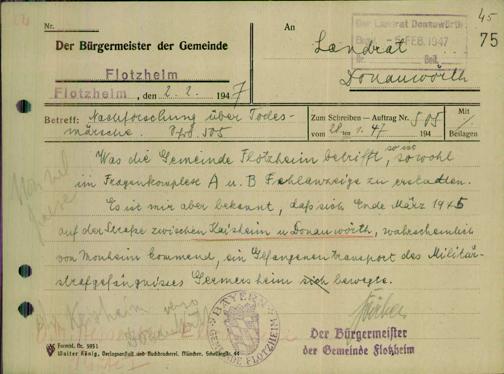 45
Nr.
75
Der Bürgermeister der Gemeinde
Flotzheim
Flotzheim, den 2. 2. 1947
An
Landrat
Donauwörth
Der Landrat Donauwörth
FEB. 1947
Beil.
Betreff: Nachforschung über Todes-
märsche.
Zum Schreiben — Auftrag Nr. 505
vom 28. 1. 47 194
Mit
Beilagen
Was die Gemeinde Flotzheim betrifft, so ist sowohl
im Fragenkomplex A u. B Fehlanzeige zu erstatten.
Es ist mir aber bekannt, daß sich Ende März 1945
auf der Straße zwischen Kaisheim u Donauwörth, wahrscheinlich
von Monheim kommend, ein Gefangenentransport des Militär-
strafgefängnisses Germersheim sich bewegte.
BAYERN
GEMEINDE FLOTZHEIM
Der Bürgermeister
der Gemeinde Flotzheim
Formbl. Nr. 5951
Walter König, Verlagsanstalt und Buchdruckerei, München, Schellingstr. 44